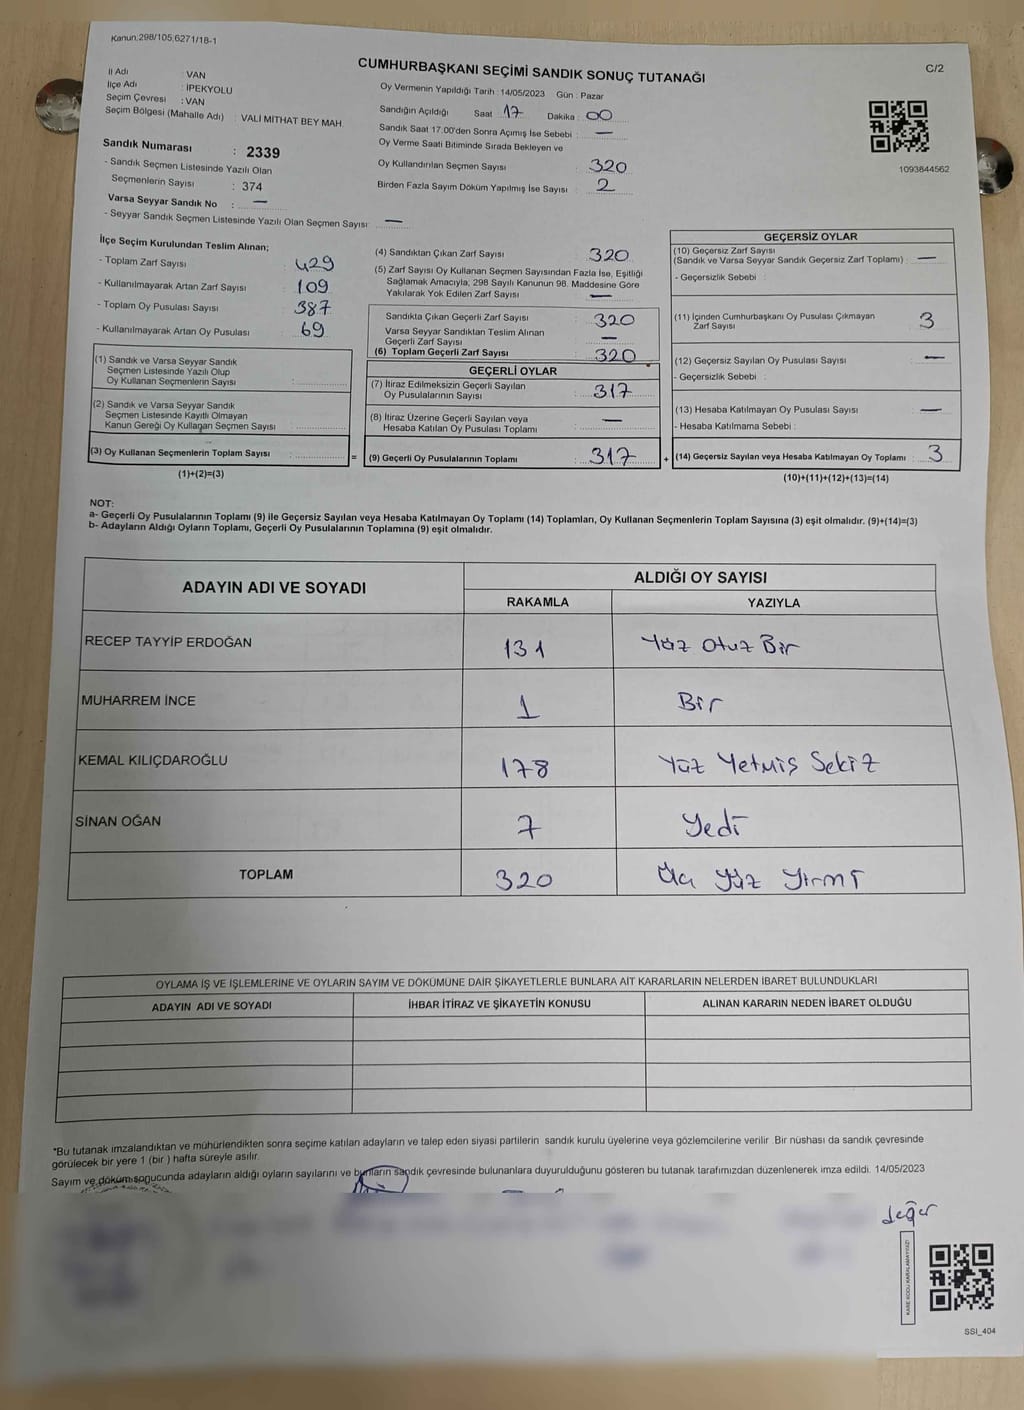 Kanun:298/105,6271/18-1
CUMHURBAŞKANI SEÇİMİ SANDIK SONUÇ TUTANAĞI
C/2
İl Adı : VAN
İlçe Adı : İPEKYOLU
Seçim Çevresi : VAN
Seçim Bölgesi (Mahalle Adı) : VALI MİTHAT BEY MAH.
Oy Vermenin Yapıldığı Tarih : 14/05/2023 Gün : Pazar
Sandığın Açıldığı Saat : 17 Dakika : 00
Sandık Saat 17.00'den Sonra Açımış İse Sebebi : —
Oy Verme Saati Bitiminde Sırada Bekleyen ve
Oy Kullandırılan Seçmen Sayısı : 320
Birden Fazla Sayım Döküm Yapılmış İse Sayısı : 2
1093644562
Sandık Numarası : 2339
- Sandık Seçmen Listesinde Yazılı Olan
Seçmenlerin Sayısı : 374
Varsa Seyyar Sandık No : —
- Seyyar Sandık Seçmen Listesinde Yazılı Olan Seçmen Sayısı : —
İlçe Seçim Kurulundan Teslim Alınan;
- Toplam Zarf Sayısı : 429
- Kullanılmayarak Artan Zarf Sayısı : 109
- Toplam Oy Pusulası Sayısı : 387
- Kullanılmayarak Artan Oy Pusulası : 69
(1) Sandık ve Varsa Seyyar Sandık
Seçmen Listesinde Yazılı Olup
Oy Kullanan Seçmenlerin Sayısı :
(2) Sandık ve Varsa Seyyar Sandık
Seçmen Listesinde Kayıtlı Olmayan
Kanun Gereği Oy Kullanan Seçmen Sayısı :
(3) Oy Kullanan Seçmenlerin Toplam Sayısı :
(1)+(2)=(3)
=
(4) Sandıktan Çıkan Zarf Sayısı : 320
(5) Zarf Sayısı Oy Kullanan Seçmen Sayısından Fazla İse, Eşitliği
Sağlamak Amacıyla; 298 Sayılı Kanunun 98. Maddesine Göre
Yakılarak Yok Edilen Zarf Sayısı : —
Sandıkta Çıkan Geçerli Zarf Sayısı : 320
Varsa Seyyar Sandıktan Teslim Alınan
Geçerli Zarf Sayısı : —
(6) Toplam Geçerli Zarf Sayısı : 320
GEÇERLİ OYLAR
(7) İtiraz Edilmeksizin Geçerli Sayılan
Oy Pusulalarının Sayısı : 317
(8) İtiraz Üzerine Geçerli Sayılan veya
Hesaba Katılan Oy Pusulası Toplamı : —
(9) Geçerli Oy Pusulalarının Toplamı : 317
+
GEÇERSİZ OYLAR
(10) Geçersiz Zarf Sayısı
(Sandık ve Varsa Seyyar Sandık Geçersiz Zarf Toplamı) : —
- Geçersizlik Sebebi :
(11) İçinden Cumhurbaşkanı Oy Pusulası Çıkmayan
Zarf Sayısı : 3
(12) Geçersiz Sayılan Oy Pusulası Sayısı : —
- Geçersizlik Sebebi :
(13) Hesaba Katılmayan Oy Pusulası Sayısı : —
- Hesaba Katılmama Sebebi :
(14) Geçersiz Sayılan veya Hesaba Katılmayan Oy Toplamı : 3
(10)+(11)+(12)+(13)=(14)
NOT:
a- Geçerli Oy Pusulalarının Toplamı (9) ile Geçersiz Sayılan veya Hesaba Katılmayan Oy Toplamı (14) Toplamları, Oy Kullanan Seçmenlerin Toplam Sayısına (3) eşit olmalıdır. (9)+(14)=(3)
b- Adayların Aldığı Oyların Toplamı, Geçerli Oy Pusulalarının Toplamına (9) eşit olmalıdır.
ADAYIN ADI VE SOYADI
ALDIĞI OY SAYISI
RAKAMLA YAZIYLA
RECEP TAYYİP ERDOĞAN 131 Yüz Otuz Bir
MUHARREM İNCE 1 Bir
KEMAL KILIÇDAROĞLU 178 Yüz Yetmiş Sekiz
SİNAN OĞAN 7 Yedi
TOPLAM 320 Üç Yüz Yirmi
OYLAMA İŞ VE İŞLEMLERİNE VE OYLARIN SAYIM VE DÖKÜMÜNE DAİR ŞİKAYETLERLE BUNLARA AİT KARARLARIN NELERDEN İBARET BULUNDUKLARI
ADAYIN ADI VE SOYADI İHBAR İTİRAZ VE ŞİKAYETİN KONUSU ALINAN KARARIN NEDEN İBARET OLDUĞU
*Bu tutanak imzalandıktan ve mühürlendikten sonra seçime katılan adayların ve talep eden siyasi partilerin sandık kurulu üyelerine veya gözlemcilerine verilir .Bir nüshası da sandık çevresinde
görülecek bir yere 1 (bir ) hafta süreyle asılır.
Sayım ve döküm sonucunda adayların aldığı oyların sayılarını ve bunların sandık çevresinde bulunanlara duyurulduğunu gösteren bu tutanak tarafımızdan düzenlenerek imza edildi. 14/05/2023
değer
KARE KODU KARALAMAYINIZ!
SSI_404